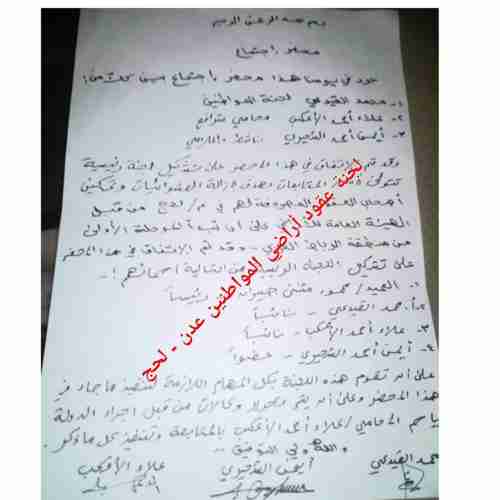 بسم الله الرحمن الرحيم
محضر إجتماع
حرر في يومنا هذا محضر بإجتماع بين كلاً من:
١- محمد القيدعي لجنة المواطنين
٢- علاء أحمد الأكحب محامي مترافع
٣- أيمن أحمد القحيري ناشط
وقد تم الإتفاق في هذا المحضر على تشكيل لجنة رئيسية
تتولى المتابعات بهدف إزالة العشوائيات وتمكين
أصحابي العقود لهم في م/ لحج من قبل
الهيئة العامة على أن تبدأ المرحلة الأولى
من منطقة الرباط وقد تم الإتفاق في هذا المحضر
على تشكيل اللجنة من التالية اسمائهم :-
١- العميد/ حمود مثنى رئيساً
٢- أ. حمد القيدعي - نائباً
٣- علاء أحمد الأكحب - نائباً
٤- أيمن أحمد القحيري - عضواً
على أن تقوم هذه اللجنة بكل المهام اللازمة لتنفيذ ما جاء في
هذا المحضر وعلى أن يتم وكالات من قبل الدولة
باسم المحامي/ علاء أحمد الأكحب بالمتابعة وتنفيذ كل ما ذكر.
والله ولي التوفيق --
محمد القيدعي أيمن القحيري علاء الأكحب
لجنة عقود أراضي المواطنين عدن - لحج